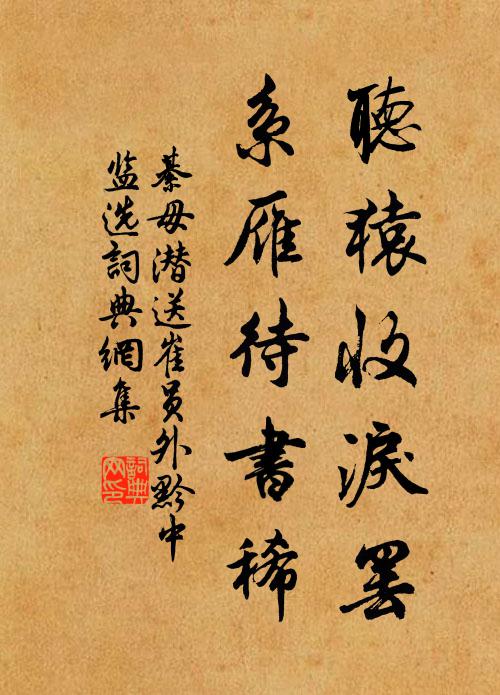 聽猿收淚罷
系雁待書稀
綦毋潜送崔員外黔中
监选詞典網集
詞典
网印